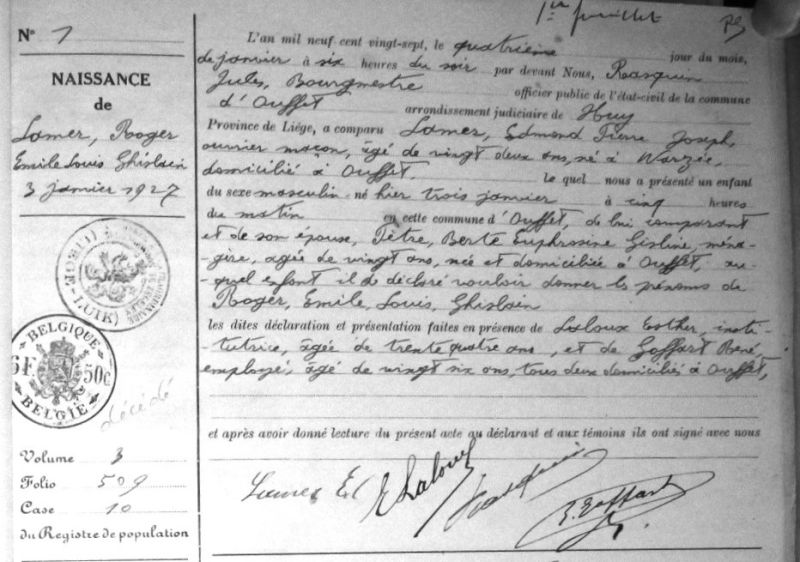 1er feuillet
N° 1
NAISSANCE
de
Lamer, Roger
Emile Louis Ghislain
3 janvier 1927
LUIK
BELGIQUE
6F 50c
BELGIË
décédé
Volume 3
Folio 509
Case 10
du Registre de population
L'an mil neuf cent vingt-sept, le quatrième jour du mois,
de janvier à six heures du soir par devant Nous, Rasquin
Jules, Bourgmestre officier public de l'état-civil de la commune
d'Ouffet arrondissement judiciaire de Huy
Province de Liége, a comparu Lamer, Edmond Pierre Joseph,
ouvrier maçon, âgé de vingt deux ans, né à Warzée,
domicilié à Ouffet, le quel nous a présenté un enfant
du sexe masculin né hier trois janvier à cinq heures
du matin en cette commune d'Ouffet, de lui comparant
et de son épouse, Pètre, Berte Euphrosine Gisline, ména-
-gère, agée de vingt ans, née et domiciliée à Ouffet, au-
-quel enfant il a déclaré vouloir donner les prénoms de
Roger, Emile, Louis, Ghislain
les dites déclaration et présentation faites en présence de Laloux Esther, insti-
-tutrice, âgée de trente quatre ans, et de Goffart René
employé, âgé de vingt six ans, tous deux domiciliés à Ouffet,
et après avoir donné lecture du présent acte au déclarant et aux témoins ils ont signé avec nous
Lamer E. E Laloux Rasquin R. Goffart